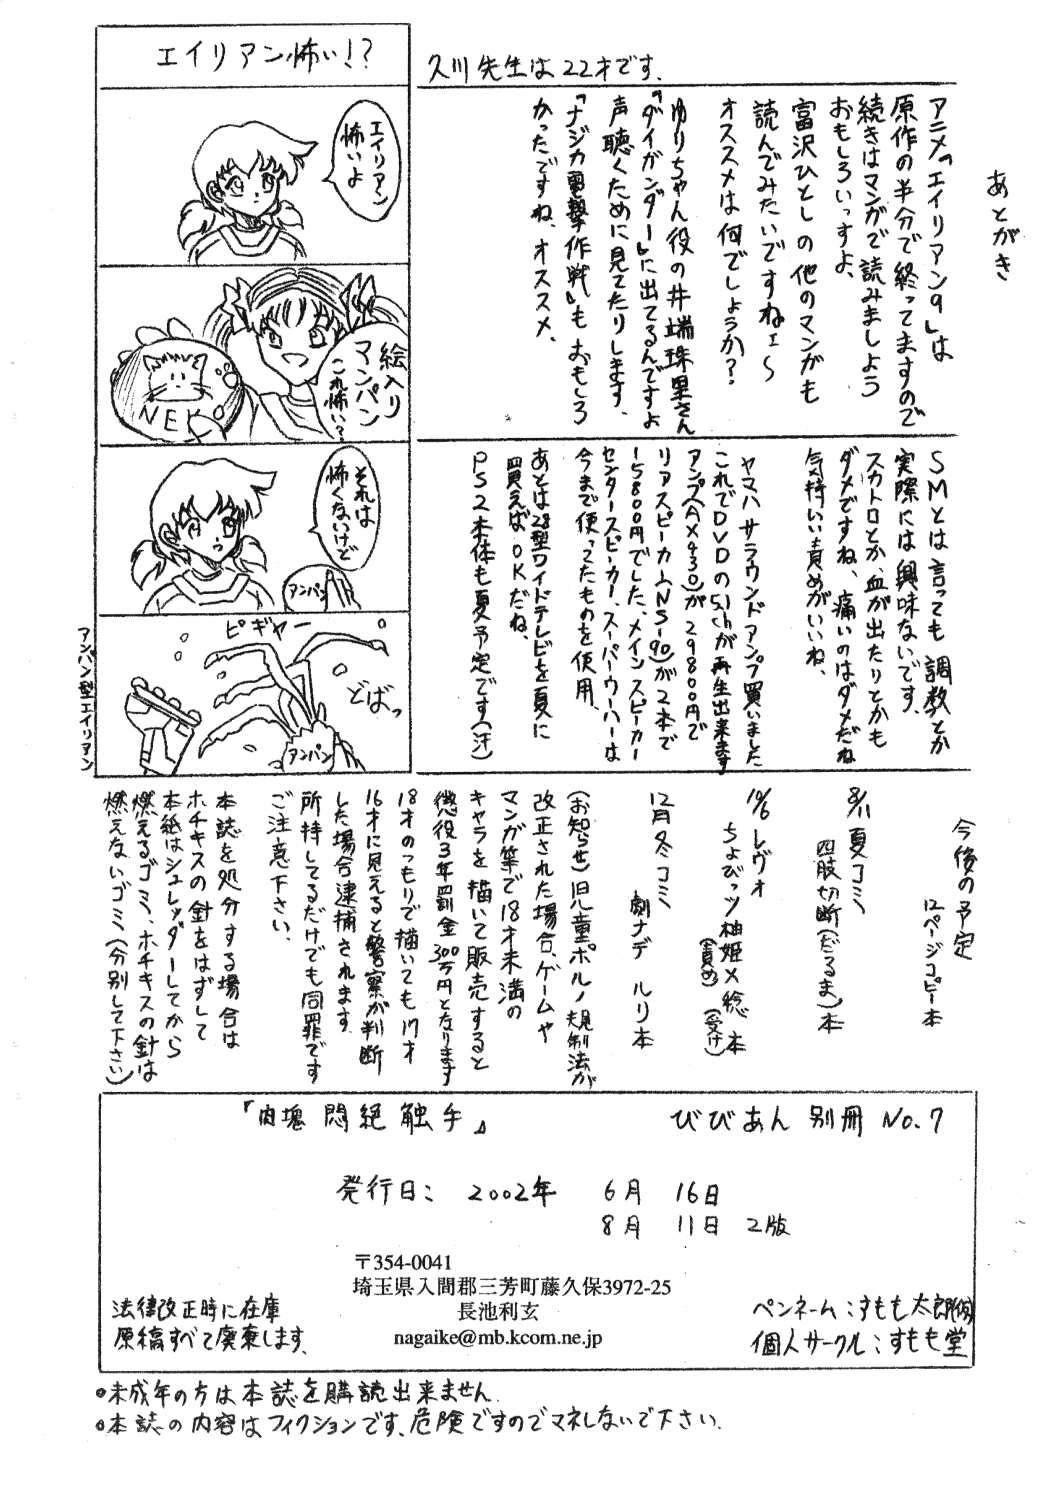 エイリアン怖い!?
エイリアン
怖いよ
絵入り
マンパン
これ怖い?
NEK
それは
怖くないけど
アンパン
ピギャー
どばっ
アンパン
アンパン型エイリアン
久川先生は22才です.
あとがき
アニメ『エイリアン9』は
原作の半分で終ってますので
続きはマンガで読みましょう
おもしろいっすよ、
富沢ひとしの他のマンガも
読んでみたいですねェ~
オススメは何でしょうか?
ゆりちゃん役の井端珠里さん
『ダイガンダー』に出てるんですよ
声聴くために見てたりします、
『ナジカ電撃作戦』もおもしろ
かったですね、オススメ、
SMとは言っても調教とか
実際には興味ないです。
スカトロとか、血が出たりとかも
ダメですね、痛いのはダメだね
気持いい責めがいいね、
ヤマハサラウンドアンプ買いました
これでDVDの5.1chが再生出来ます
アンプ(AX430)が29800円で
リアスピーカー(NS-90)が2本で
15800円でした、メインスピーカー
センタースピーカー、スーパーウーハーは
今まで使ってたものを使用、
あとは28型ワイドテレビを夏に
買えばOKだね、
PS2本体も夏予定です(汗)
今後の予定
12ページコピー本
8/11夏コミ
四肢切断(だるま)本
10/6レヴォ
ちょびっツ柚姫×稔本
(責め)
(受け)
12月冬コミ
劇ナデ ルリ本
(お知らせ)児童ポルノ規制法が
改正された場合、ゲームや
マンガ等で18才未満の
キャラを描いて販売すると
懲役3年罰金300万円となります
18才のつもりで描いても17才
16才に見えると警察が判断
した場合逮捕されます
所持してるだけでも同罪です
ご注意下さい、
本誌を処分する場合は
ホチキスの針をはずして
本紙はシュレッダーしてから
燃えるゴミ、ホチキスの針は
燃えないゴミ(分別して下さい)
『肉塊 悶絶 触手』
びびあん 別冊 No.7
発行日: 2002年 6月 16日
8月 11日 2版
〒354-0041
埼玉県入間郡三芳町藤久保3972-25
長池利玄
nagaike@mb.kcom.ne.jp
法律改正時に在庫
原稿すべて廃棄します.
ペンネーム:すもも太郎(仮)
個人サークル:すもも堂
●未成年の方は本誌を購読出来ません.
●本誌の内容はフィクションです、危険ですのでマネしないで下さい.